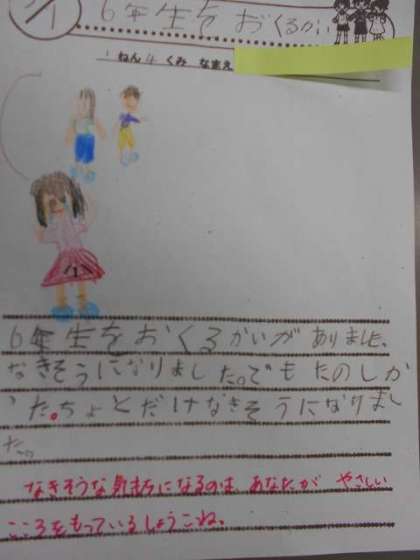 6年生をおくるかい
1 ねん 4 くみ なまえ
6年生をおくるかいがありました。
なきそうになりました。でもたのしか
った。ちょとだけなきそうになりまし
た。
なきそうな気もちになるのは、あなたが やさしい
こころをもっているしょうこね。